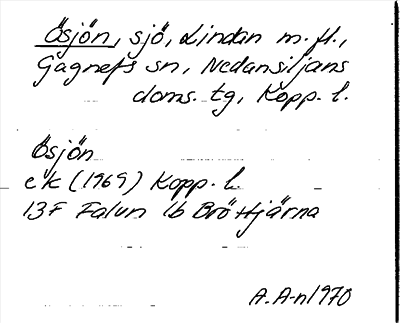 Ösjön, sjö, Lindan m.fl.,
Gagnefs sn, Nedansiljans
doms. tg, Kopp. l.
Ösjön
ek (1969) Kopp. l.
13F Falun 1b Bröttjärna
A. A-n 1970